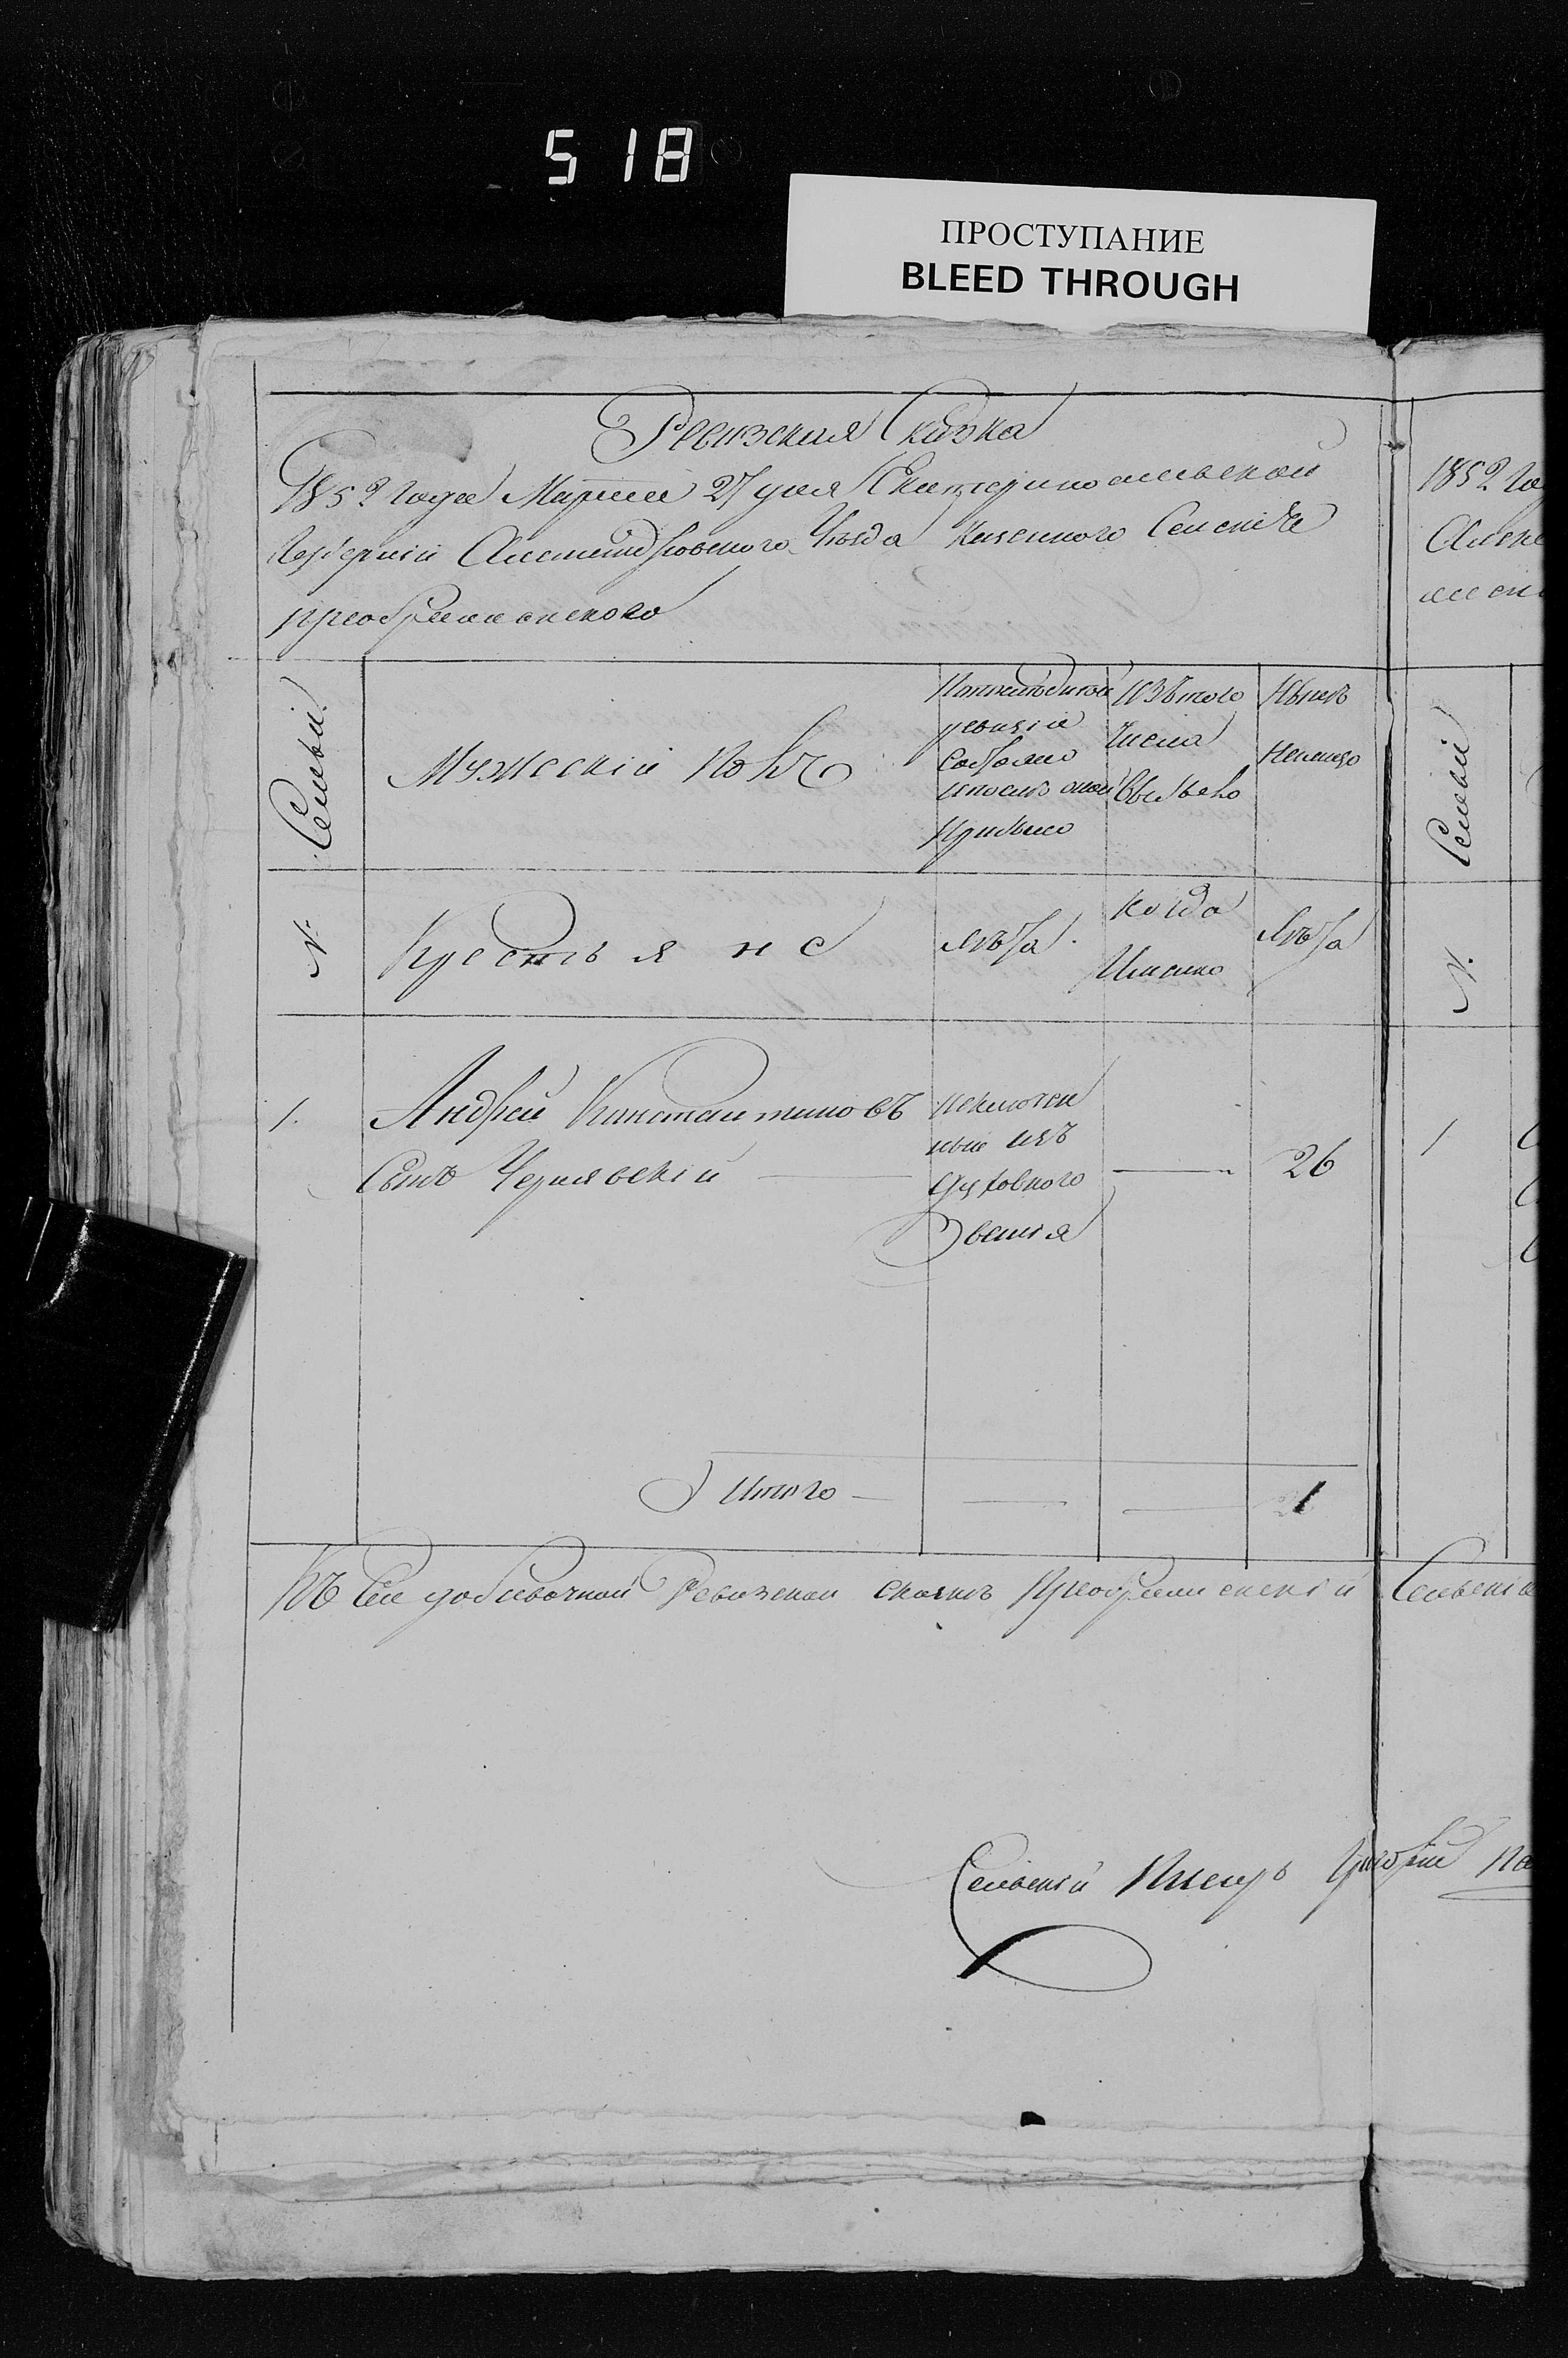 518
ПРОСТУПАНИЕ
BLEED THROUGH
Ревизская Сказка
1852 Года Марта 27 дня Екатеринославской
Губерніи Александровского Уѣзда Казенного Селенія
преображенского
№ Семьи
Мужескій полъ
По последней
ревизіи
Состояло
и после оной
прибыло
Изъ того
числа
выбыло
Нынѣ
налицо
Крестьяне
Лѣта
Когда
Именно
Лѣта
1.
Андрей Константиновъ
Сынъ Чернявскій
исключен
ный изъ
духовного
Звенія
26
Итого
1
Къ сей добавочной Ревизской сказкѣ Преображенскій Сельскій
Сельскій Писарь Григорій
1852 Го
Алекс
№ Семьи
1